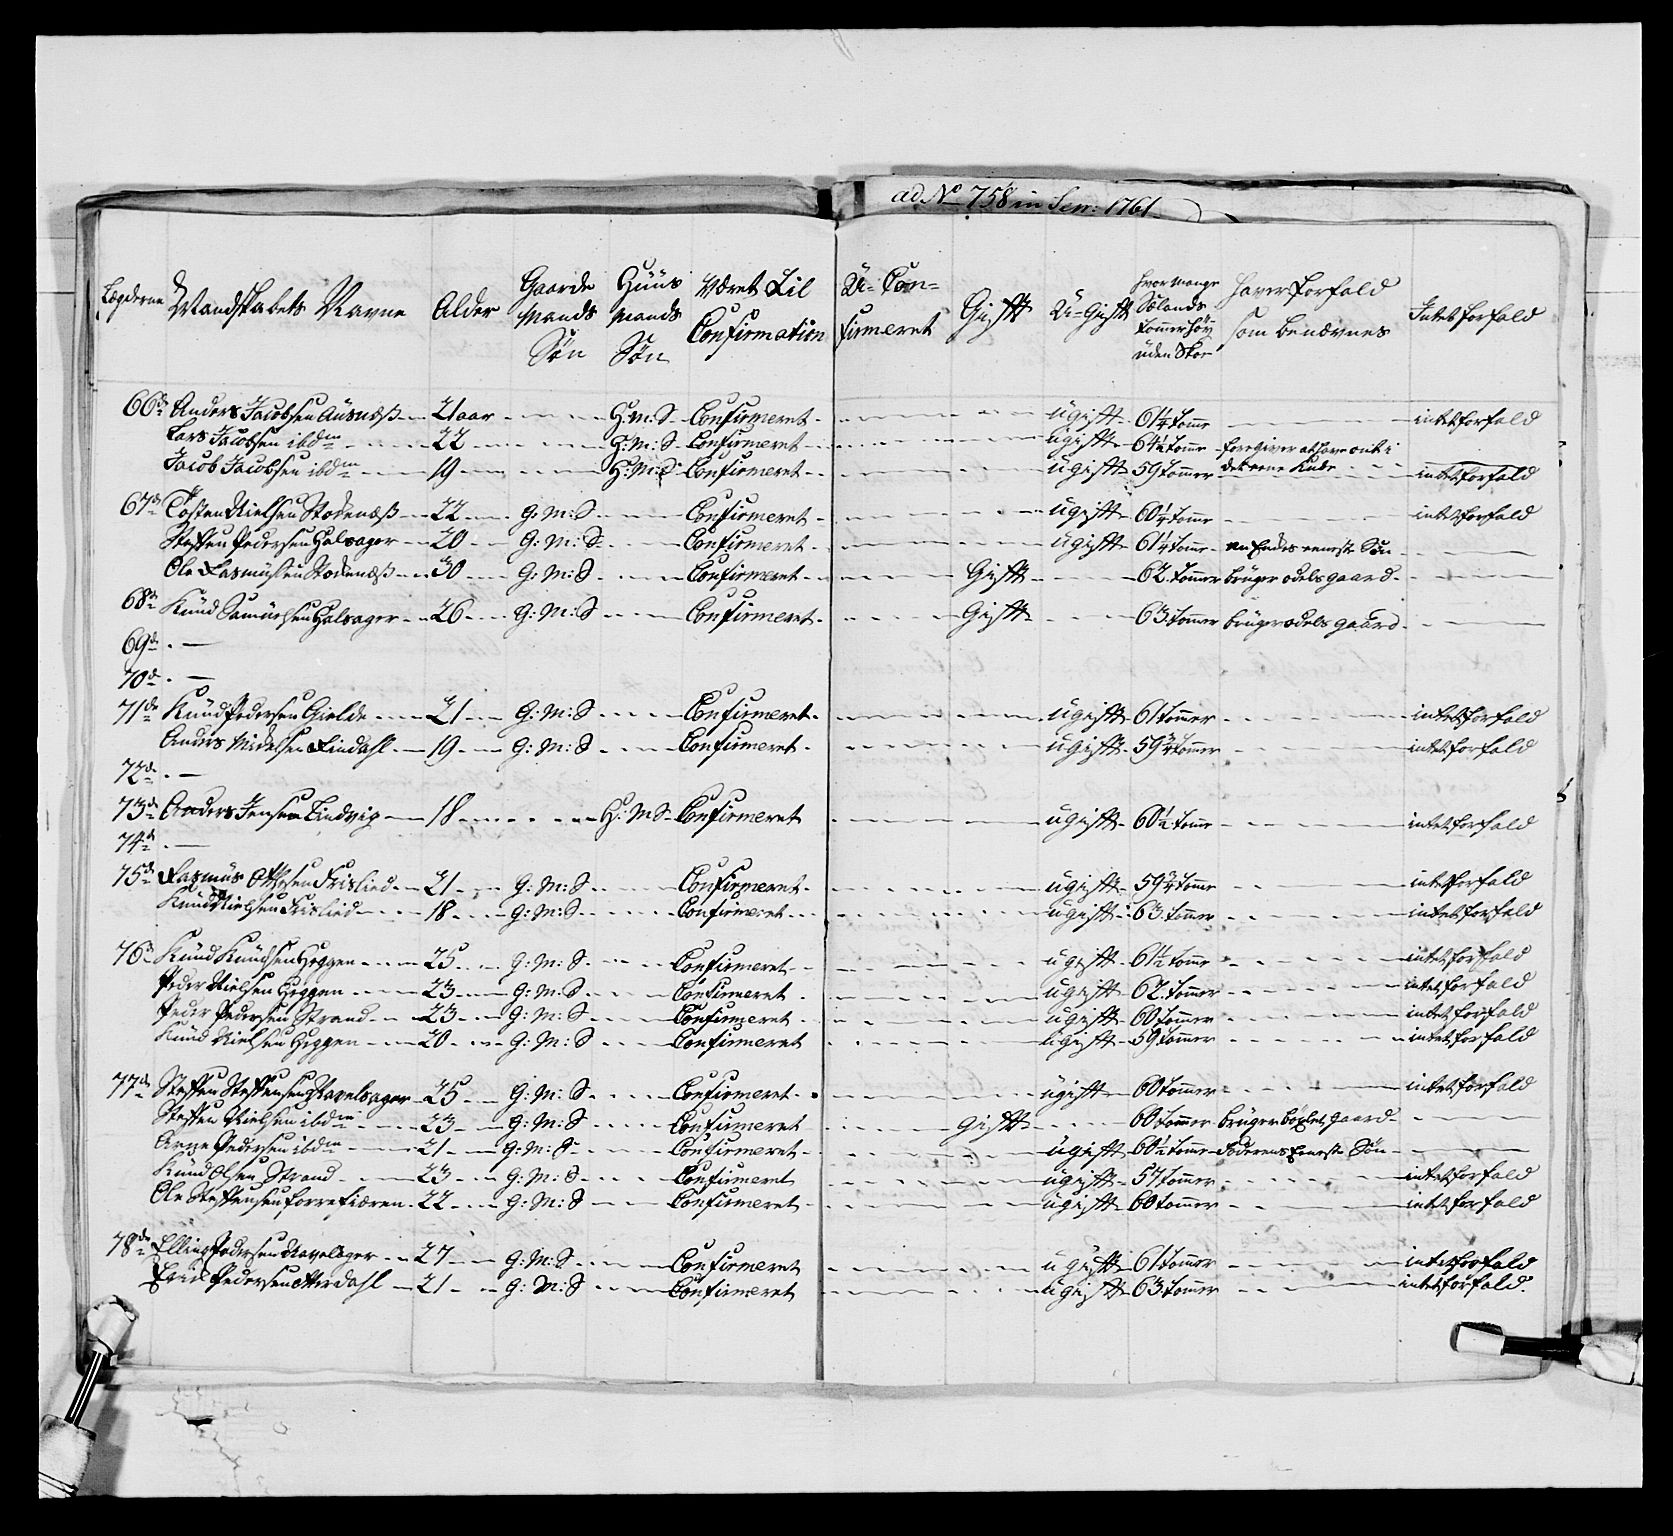 ad No 758 in Sen: 1761
Lægderne Mandskabets Navne Alder Gaarde Mands Søn Huus Mands Søn Været Til Confirmation U-Confirmeret Gift U-Gift hvor mange Sælands Tommer høy uden Skoe haver forfald som benævnes Intet forfald
66de Anders Jacobsen Ausnæss 21 aar H:M:S Confirmeret ugift 61¼ tomr intet forfald
Lars Jacobsen ibdm 22 H:M:S Confirmeret ugift 64½ tomr foregiver at have ont i
Jacob Jacobsen ibdm 19 H:M:S Confirmeret ugift 59 tommer det eene Knæe intet forfald
67de Tosten Nielsen Stodenæss 22 G:M:S Confirmeret ugift 60¼ tomr intet forfald
Steffen Pedersen Halsager 20 G:M:S Confirmeret ugift 61¼ tomr en Enkes eeneste Søn
Ole Rasmusen Stodenæss 30 G:M:S Confirmeret Gift 62 tommer bruger odels gaard
68de Knud Samuelsen Halsager 26 G:M:S Confirmeret Gift 63 tommer bruger odels gaard
69de
70de
71de Knud Pedersen Gielde 21 G:M:S Confirmeret ugift 61 tommer intet forfald
Anders Findahl 19 G:M:S Confirmeret ugift 59¾ tommer intet forfald
72de
73de Anders Jensen Lindvig 18 H:M:S Confirmeret ugift 60½ tomr intet forfald
74de
75de Rasmus Frislied 21 G:M:S Confirmeret ugift 59¾ tomr intet forfald
Knud Nielsen Frislied 18 G:M:S Confirmeret ugift 63 tommer intet forfald
76de Knud Knudsen Heggen 25 G:M:S Confirmeret ugift 61½ tomr intet forfald
Peder Nielsen Heggen 23 G:M:S Confirmeret ugift 62 tommer intet forfald
Peder Pedersen Strand 23 G:M:S Confirmeret ugift 60 tommer intet forfald
Knud Nielsen Heggen 20 G:M:S Confirmeret ugift 59 tommer intet forfald
77de Steffen Steffensen 25 G:M:S Confirmeret ugift 60 tommer intet forfald
Steffen Nielsen ibdm 23 G:M:S Confirmeret Gift 60 tommer bruger böxlet gaard
Arne Pedersen ibdm 21 G:M:S Confirmeret ugift 60½ tomr Faderens Eeneste Søn
Knud Olsen Strand 23 G:M:S Confirmeret ugift 57 tommer intet forfald
Ole Steffensen 22 G:M:S Confirmeret ugift 60 tommer intet forfald
78de Elling Pedersen 27 G:M:S Confirmeret ugift 61 tommer intet forfald
Pedersen 21 G:M:S Confirmeret ugift 63 tommer intet forfald.